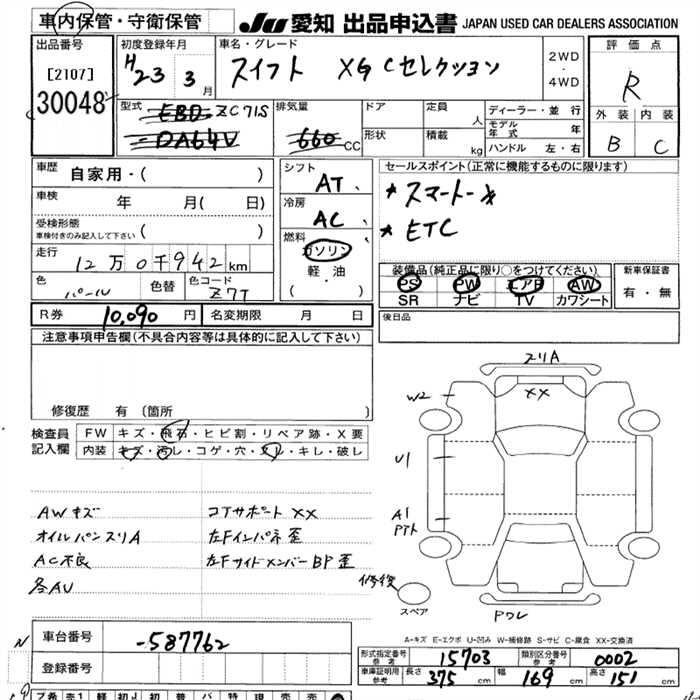 車内保管・守衛保管
JU 愛知 出品申込書 JAPAN USED CAR DEALERS ASSOCIATION
出品番号
[2107]
30048
初度登録年月
H23 3月
車名・グレード
スイフト XG Cセレクション
2WD
・
4WD
評価点
R
外装 内装
B C
型式
EBD ZC71S
DA64V
排気量
660 CC
ドア
形状
定員 人
積載 kg
ディーラー・並行
モデル年式 年
ハンドル 左・右
車歴
自家用・( )
車検 年 月( 日)
受検形態
車検付きのみ記入して下さい
走行
12万0千942km
色 パール 色替 色コード Z7T
シフト
AT、
冷房
AC、
燃料
ガソリン
軽・油
( )
セールスポイント(正常に機能するものに限ります)
* スマートーキ
* ETC
装備品(純正品に限り○をつけてください)
PS PW エアB AW
SR ナビ TV カワシート
新車保証書
有・無
R券 10,090円 名変期限 月 日
後日品
注意事項申告欄(不具合内容等は具体的に記入して下さい)
修復歴 有(箇所 )
検査員記入欄
FW キズ・飛石・ヒビ割・リペア跡・X要
内装 キズ・汚レ・コゲ・穴・スレ・キレ・破レ
AWキズ
オイルパンスリA
AC不良
各AU
コアサポートXX
左Fインパネ歪
左FサイドメンバーBP歪
スリA
XX
W2
U1
A1
PTト
修復
スペア
Pワレ
A-キズ E-エクボ U-凹み W-補修跡 S-サビ C-腐食 XX-交換済
N
車台番号 -587762
登録番号
形式指定番号 参考 15703 類別区分番号 参考 0002
車庫証明用 参考 長さ 375cm 幅 169cm 高さ 151cm